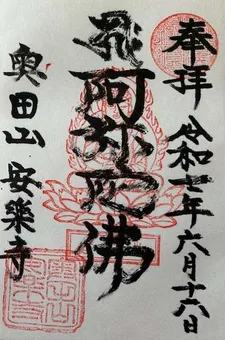 奉拝
令和七年六月十六日
飛阿弥陀佛
奥田山 安楽寺